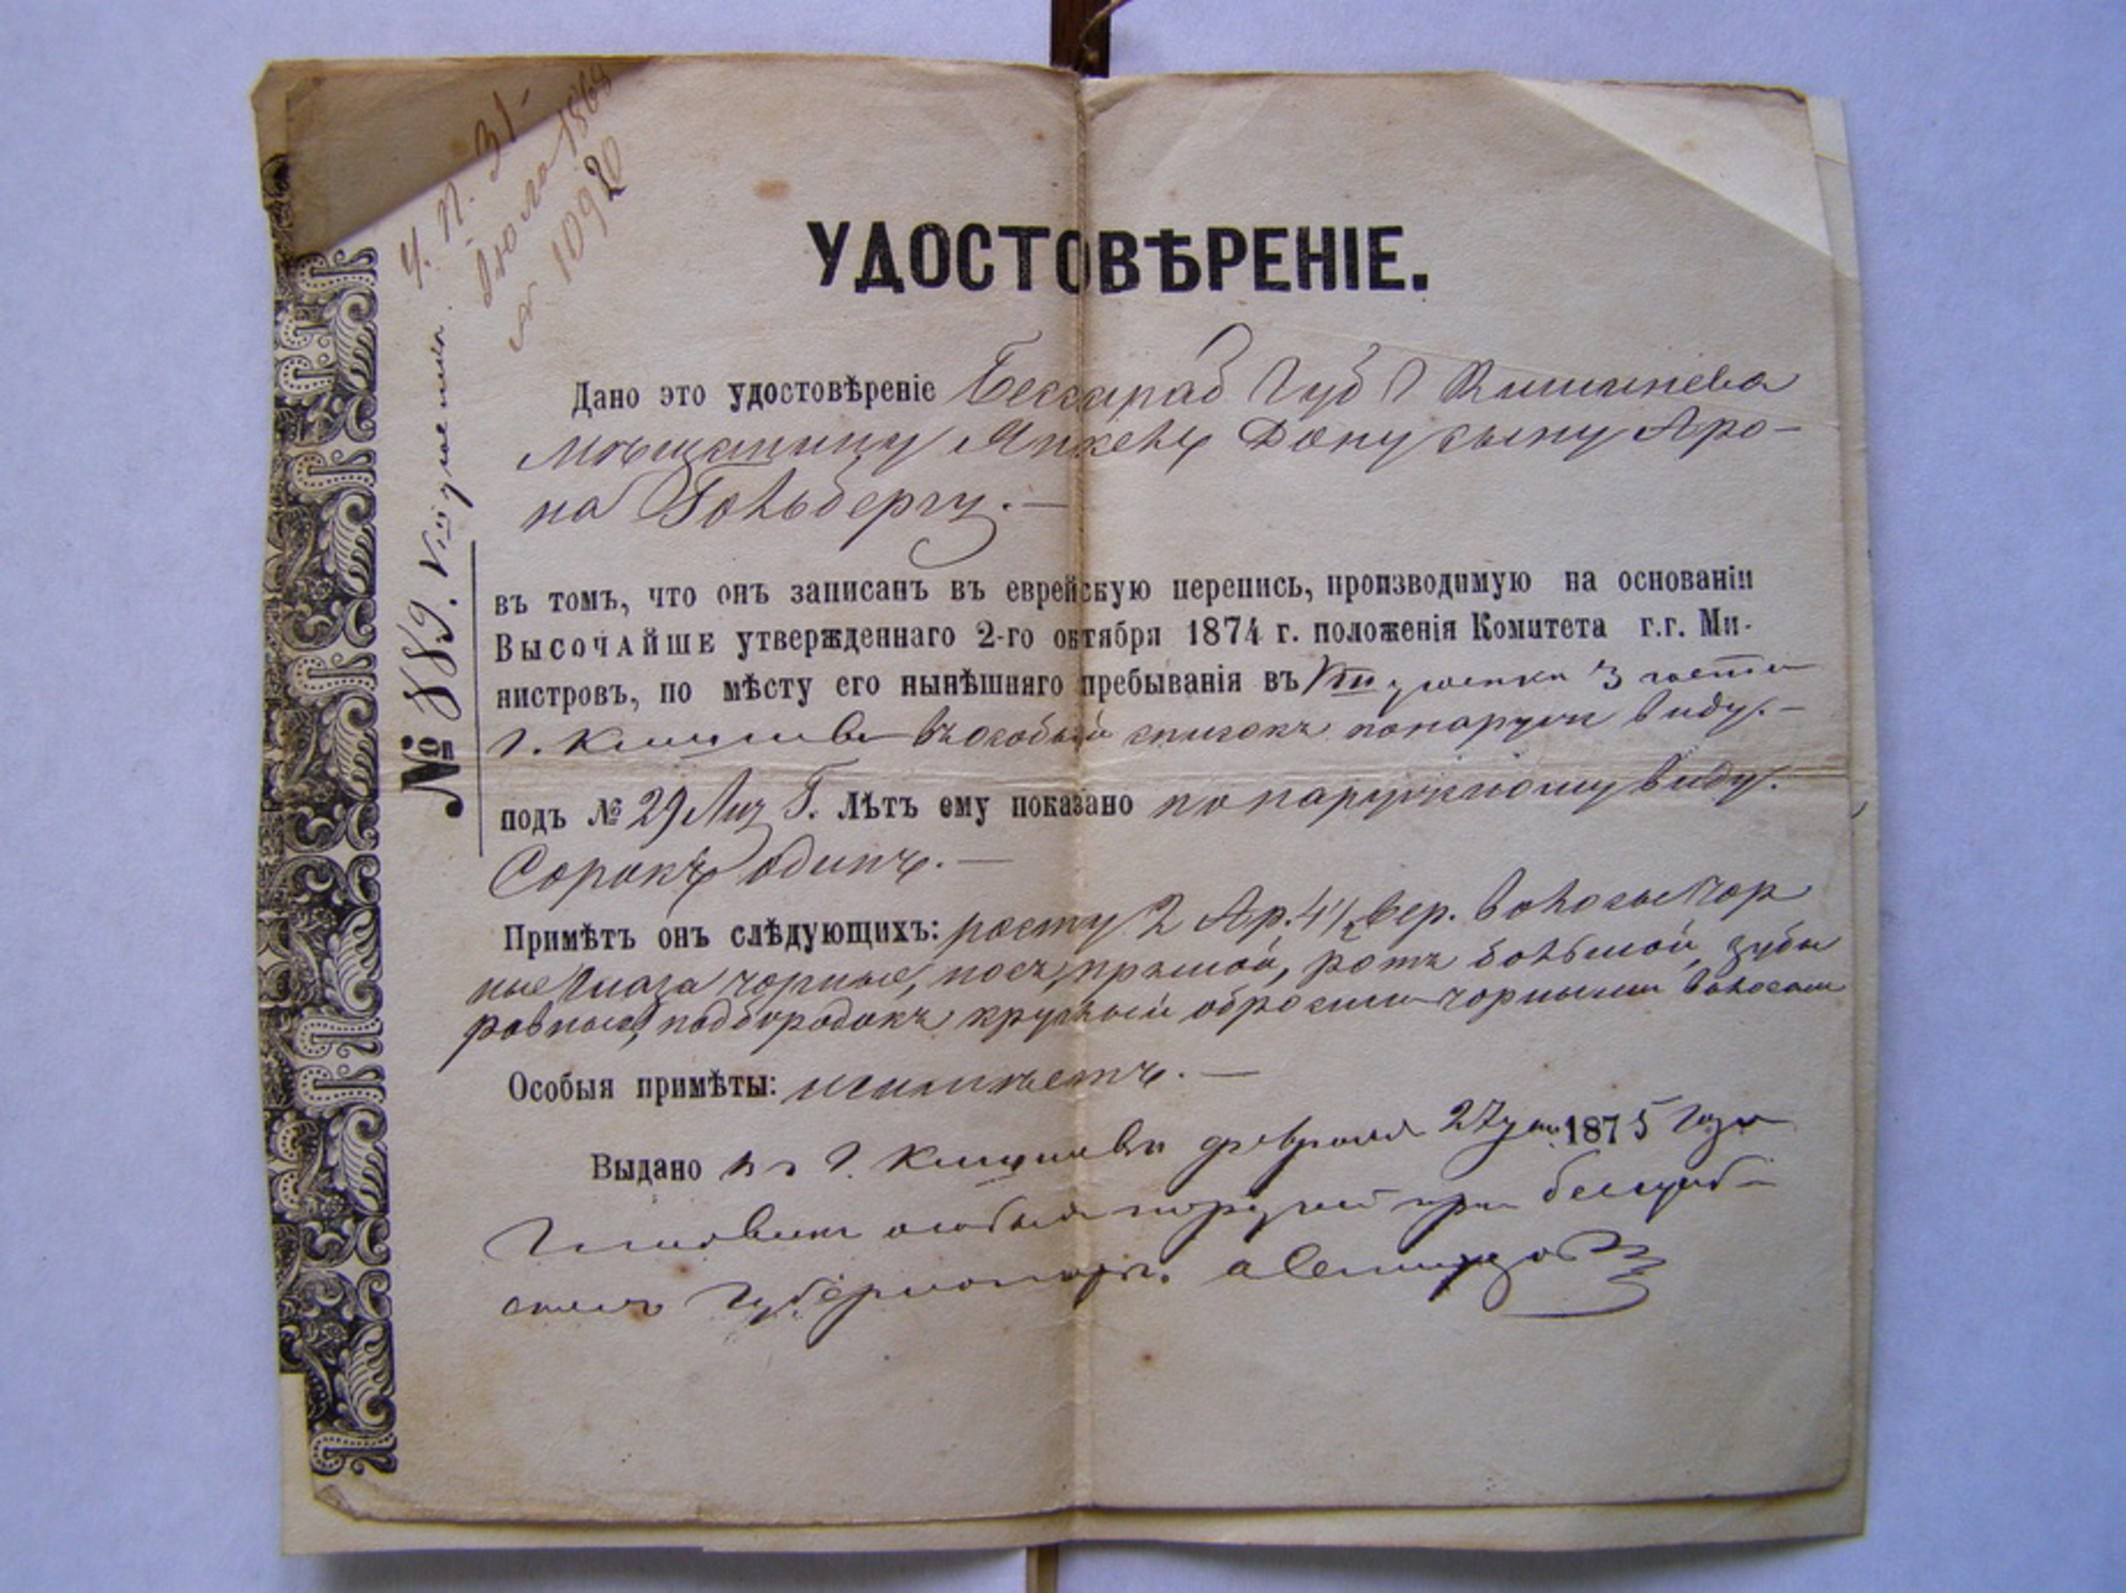 Ч. П. 31
Июля 1868
№ 10920
УДОСТОВѢРЕНІЕ.
№ 889. VIII участка.
Дано это удостовѣреніе Бессараб Губ Г Кишинева
Мѣщанину Янкелю Дону сыну Аро-
на Гольбергу. —
въ томъ, что онъ записанъ въ еврейскую перепись, производимую на основаніи
ВЫСОЧАЙШЕ утвержденнаго 2-го октября 1874 г. положенія Комитета г.г. Ми-
нистровъ, по мѣсту его нынѣшняго пребыванія въ VIII участки 3 части
г. Кишинева въ особый списокъ по наружн виду. —
подъ № 29 Лит Г. Лѣтъ ему показано по наружному виду.
Сорокъ одинъ. —
Примѣтъ онъ слѣдующихъ: росту 2 Ар. 4½ вер. волосы чор
ные глаза чорные, носъ прямой, ротъ большой, зубы
ровные, подбородокъ круглый обросши чорными волосами
Особыя примѣты: неимѣетъ. —
Выдано въ г. Кишиневѣ февраля 27 дня 1875 года
особыхъ порученій при Бессараб-
скомъ Губернаторѣ.